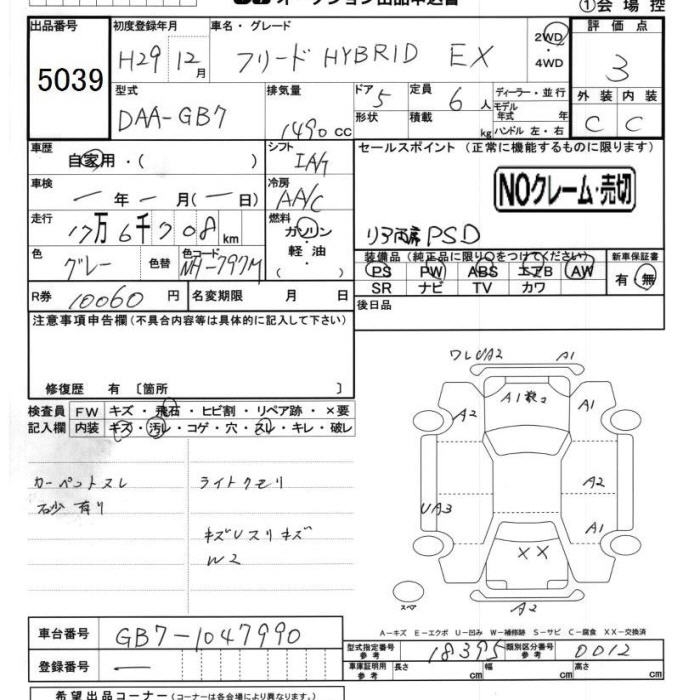 オークション出品申込書
①会場控
出品番号 初度登録年月 車名・グレード 評価点
5039 H29年12月 フリード HYBRID EX 2WD ・ 4WD 3
型式 排気量 ドア 5 定員 6人 ディーラー・並行 外装 内装
DAA-GB7 1490cc 形状 積載 kg モデル年式 年 ハンドル 左・右 C C
車歴 自家用・( ) シフト IAT セールスポイント (正常に機能するものに限ります)
車検 ー年ー月(ー日) 冷房 AA/C NOクレーム・売切
走行 17万6千708km 燃料 ガソリン・軽油 リア両席PSD
色 グレー 色替 色コード NH-797M 装備品 (純正品に限り○をつけてください) 新車保証書
PS PW ABS エアB AW 有・無
SR ナビ TV カワ
R券 10060円 名変期限 月 日 後日品
注意事項申告欄(不具合内容等は具体的に記入して下さい)
修復歴 有 〔箇所 〕
検査員 FW キズ・飛石・ヒビ割・リペア跡・×要
記入欄 内装 キズ・汚レ・コゲ・穴・スレ・キレ・破レ
カーペットスレ ライトクモリ
石少有り
キズUスリキズ
W2
ワレUA2 A1
A2 A1 A1
A2
UA3
A1
XX
スペア A2
A-キズ E-エクボ U-凹み W-補修跡 S-サビ C-腐食 XX-交換済
車台番号 GB7-1047990 型式指定番号 参考 18395 類別区分番号 参考 0012
登録番号 ー 車庫証明用 参考 長さ 幅 高さ
希望出品コーナー(コーナーは各会場により異なります。)